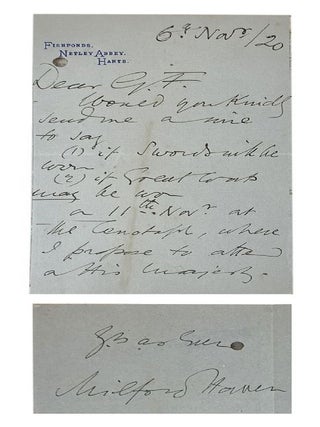 FISHPONDS,
NETLEY ABBEY,
HANTS.
6th Novr/20
Dear G. F.
Would you kindly
send me a wire
to say
(1) if Swords will be
worn
(2) if Great Coats
may be worn
on 11th Novr at
the Cenotaph, where
I propose to
His Majesty.
Milford Haven